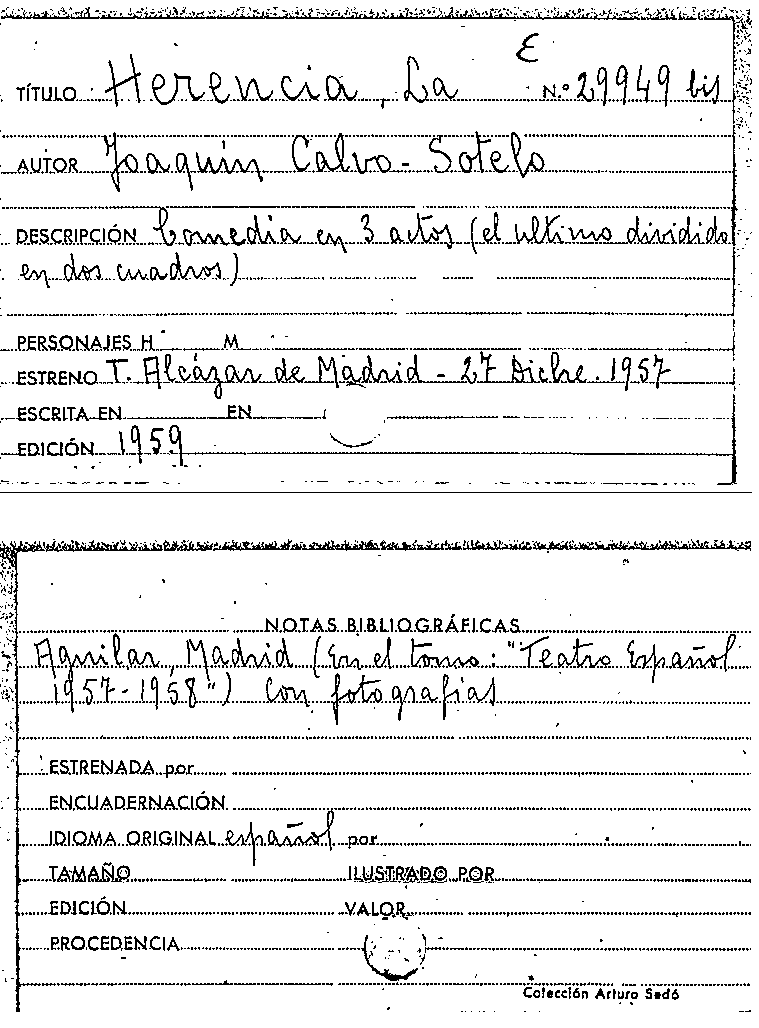 E
TÍTULO Herencia, La N.º 29949 bis
AUTOR Joaquín Calvo-Sotelo
DESCRIPCIÓN Comedia en 3 actos (el ultimo dividido
en dos cuadros)
PERSONAJES H M
ESTRENO T. Alcázar de Madrid - 27 Dicbre. 1957
ESCRITA EN EN
EDICIÓN 1959
NOTAS BIBLIOGRÁFICAS
Aguilar, Madrid (En el tomo: "Teatro Español
1957-1958") con fotografías
ESTRENADA por
ENCUADERNACIÓN
IDIOMA ORIGINAL español por
TAMAÑO ILUSTRADO POR
EDICIÓN VALOR
PROCEDENCIA
Colección Arturo Sedó